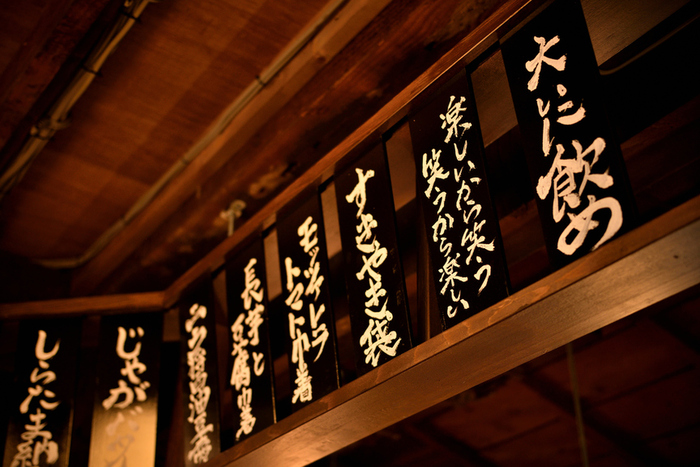 大いに飲め
楽しいから笑う
笑うから楽しい
すきやき袋
モッツァレラ
トマト巾着
長芋と
豆腐巾着
じゃがバタ
しらたき